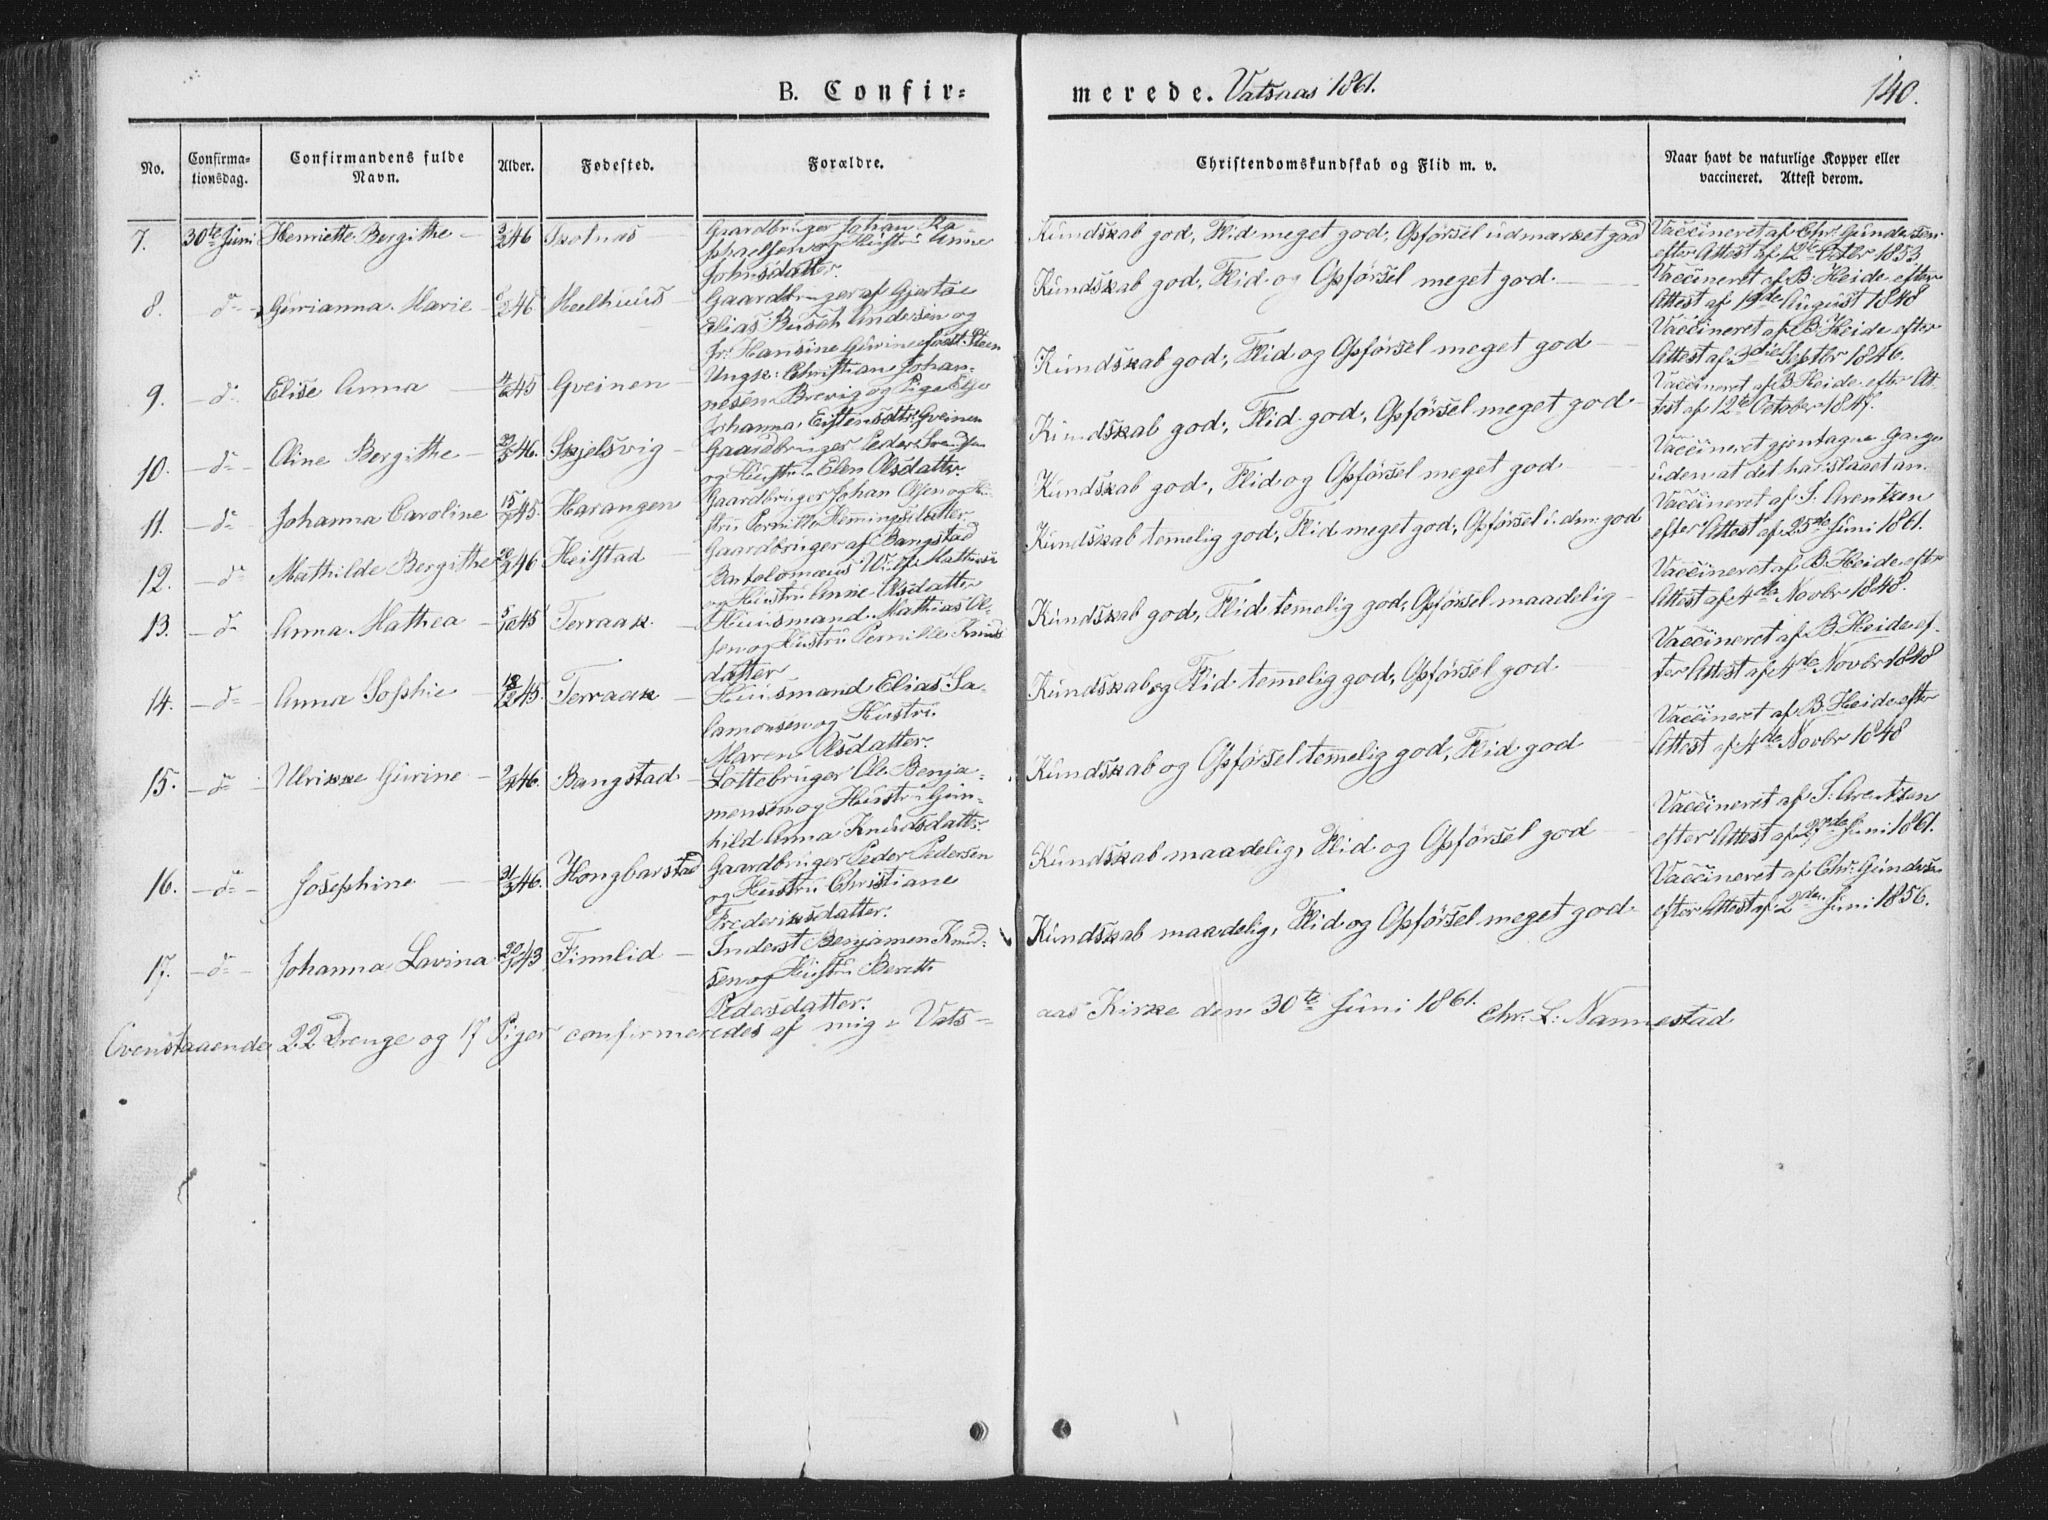 B. Confir-
merede. Vatsaas 1861.
140.
No.
Confirma-
tionsdag.
Confirmandens fulde
Navn.
Alder.
Fødested.
Forældre.
Christendomskundskab og Flid m. v.
Naar havt de naturlige Kopper eller
vaccineret. Attest derom.
7. 30te Juni Henriette Bergithe 46 Skotnæs
Gaardbruger Johan Ra-
phaelsen og Hustru Anne
Johnsdatter.
Kundskab god, Flid meget god, Opførsel udmærket god
Vaccineret af Chr. Gundersen
efter Attest af 12te Octbr 1853
8. d Gurianna Marie 46 Helhuus
Gaardbruger af Gjertøe
Elias Busch Andersen og
Hansine Gurine Steen
Kundskab god, Flid og Opførsel meget god
Vaccineret af B. Heide efter
Attest af 19de August 1848
9. d Elise Anna 45 Gveinen
Ungk: Christian Johan-
nesen Brevig og Pige Else
Johanna Gveinen
Kundskab god, Flid og Opførsel meget god
Vaccineret af B. Heide efter
Attest af 3die Septbr 1846.
10. d Oline Bergithe 46. Skjelsvig
Gaardbruger Peder
og Hustru Elen Olsdatter.
Kundskab god, Flid god, Opførsel meget god
Vaccineret af B. Heide efter At-
test af 12te October 1847.
11. d Johanna Caroline 15 45. Harangen
Gaardbruger Johan Olsen og Hu-
stru Pernille Hemmingsdatter
Kundskab god, Flid og Opførsel meget god
Vaccineret gjentagne Gange
uden at det har slaaet an.
12. d Mathilde Bergithe 46 Heilstad
Gaardbruger af Bangstad
Bartolomæus
og Hustru Anne Olsdatter
Kundskab temelig god, Flid meget god, Opførsel god
Vaccineret af S. Arentzen
efter Attest af 25de Juni 1861.
13. d Anna Mathea 5/10 45 Terraak
Huusmand Mathias Ol-
sen og Hustru Pernille Knuds
datter
Kundskab god, Flid temelig god, Opførsel maadelig
Vaccineret af B. Heide efter
Attest af 4de Novbr 1848.
14. d Anna Sophie 18/12 45. Terraak
Huusmand Elias Sa-
lamonsen og Hustru
Maren Olsdatter.
Kundskab og Flid temelig god, Opførsel god
Vaccineret af B. Heide ef-
ter Attest af 4de Novbr 1848
15. d Ulrikke Gurine 46. Bangstad
Lottebruger Ole Benja-
mensen og Hustru Gun-
hild Anna Knudsdatter.
Kundskab og Opførsel temelig god, Flid god
Vaccineret af B. Heide efter
Attest af 4de Novbr 1848
16. d Josephine 31/3 46. Hongbarstad
Gaardbruger Peder Pedersen
og Hustru Christiane
Frederiksdatter.
Kundskab maadelig, Flid og Opførsel god
Vaccineret af S. Arentzen
efter Attest af 27de Juni 1861.
17. d Johanna Lavina 43 Finnlid
Inderst Benjamen Knud-
sen og Hustru Berette
Pedersdatter.
Kundskab maadelig, Flid og Opførsel meget god
Vaccineret af Chr. Gunders
efter Attest af 2den Juni 1856.
Ovenstaaende 22 Drenge og 17 Piger confirmeredes af mig i Vats-
aas Kirke den 30te Juni 1861.
Chr. L. Nannestad